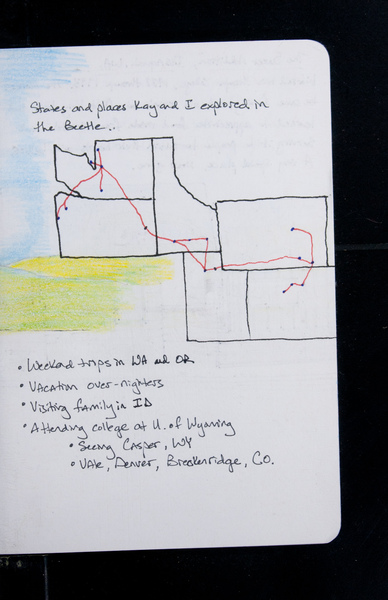 States and places Kay and I explored in
the Beetle..
• Weekend trips in WA and OR
• Vacation over-nighters
• Visiting family in ID
• Attending college at U. of Wyoming
• Seeing Casper, WY
• Vale, Denver, Breckenridge, CO.